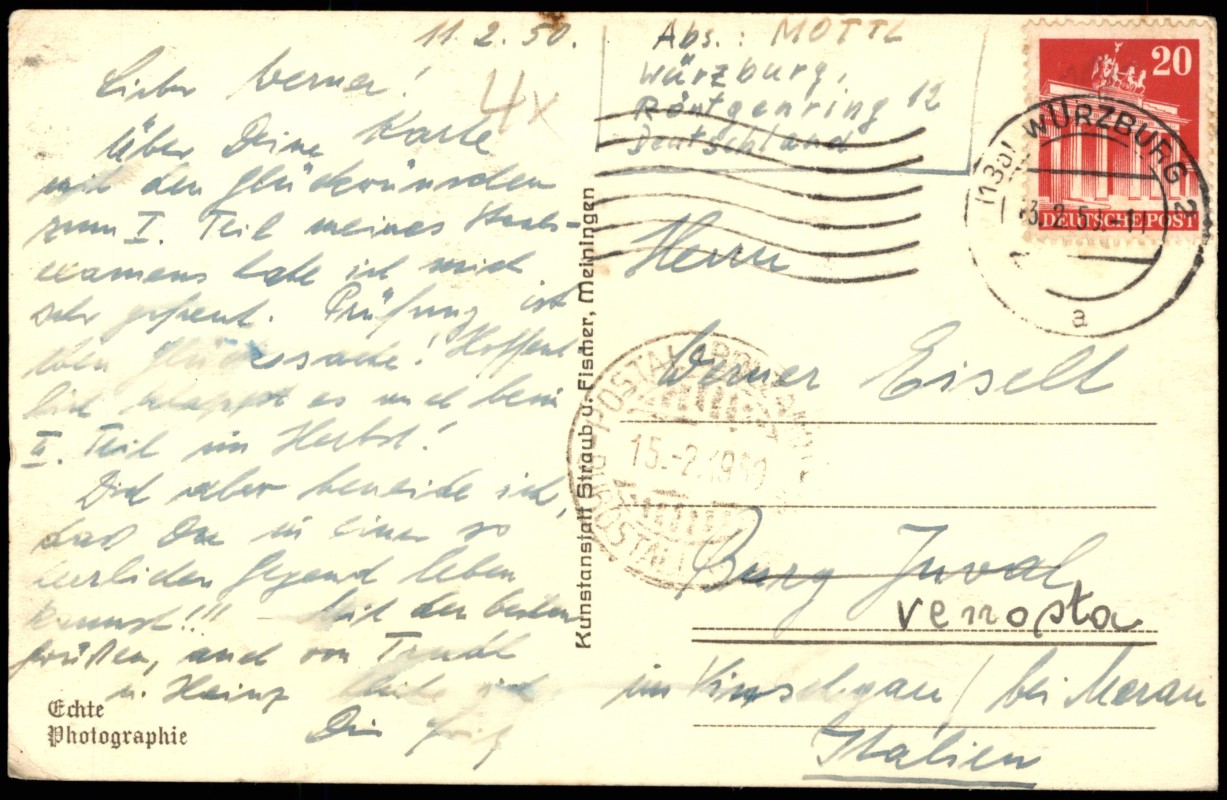 11.2.50.
Lieber Werner!
4x
Über Deine Karte
mit den Glückwünschen
zum I. Teil meines Staats-
examens habe ich mich
sehr gefreut. Prüfung ist
eben Glückssache! Hoffent-
lich klappt es auch beim
II. Teil im Herbst!
Dich aber beneide ich,
dass Du in einer so
herrlichen Gegend leben
kannst!!! – Mit den besten
Grüßen, auch von Trudl
u. Heinz bleibe ich
Dein
Echte
Photographie
Kunstanstalt Straub u. Fischer, Meiningen
Abs.: MOTTL
Würzburg,
Röntgenring 12
Deutschland
20
DEUTSCHE POST
(13a) WÜRZBURG 2
a
15.-2.19
Herrn
Werner Eiselt
Burg Juval
venosta
im Vinschgau / bei Meran
Italien